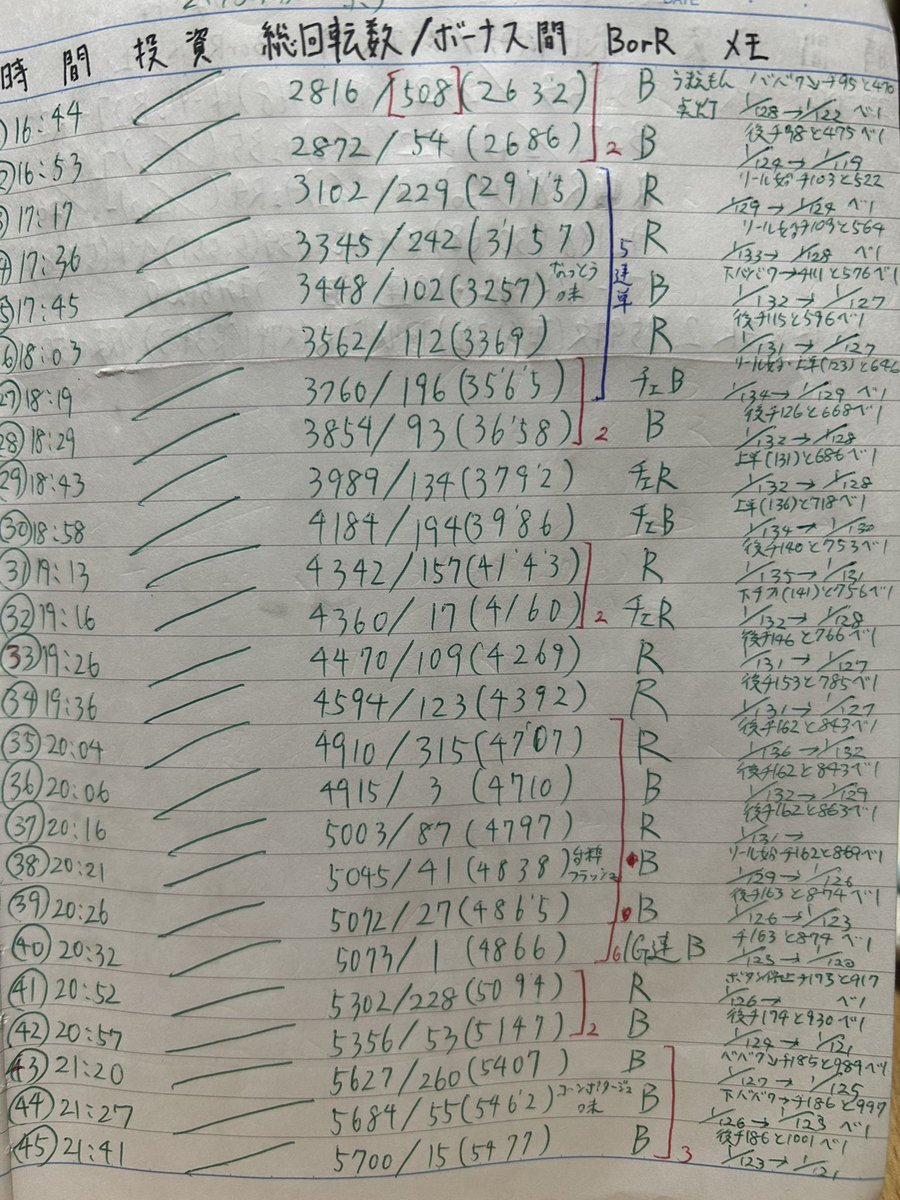 時間 投資 総回転数/ボーナス間 BorR メモ
16:44 2816/[508](2632) B うまえもん バババクン チ95と470
1/128→1/122 ベ1
16:53 2872/54(2686) 2 B 後チ98と475ベ1
1/124→1/119
17:17 3102/229(2915) R リール始チ103と522
1/129→1/124 ベ1
17:36 3345/242(3157) R リール始チ109と564
1/133→1/128 ベ1
17:45 3448/102(3257) なっとう味 5連単 B 1/132→1/127
18:03 3562/112(3369) R 後チ115と596ベ1
1/131→1/127
18:19 3760/196(3565) チェB
1/134→1/129 ベ1
28 18:29 3854/93(3658) 2 B 後チ126と668ベ1
1/132→1/128
29 18:43 3989/134(3792) チェR 上半(131)と686ベ1
1/132→1/128
30 18:58 4184/194(3986) チェB 上半(136)と718ベ1
1/134→1/130
31 19:13 4342/157(4143) R 後チ140と753ベ1
1/135→1/131
32 19:16 4360/17(4160) 2 チェR (141)と756ベ1
1/132→1/128
33 19:26 4470/109(4269) R 後チ146と766ベ1
1/131→1/127
34 19:36 4594/123(4392) R 後チ153と785ベ1
1/131→1/127
35 20:04 4910/315(4707) R 後チ162と843ベ1
1/136→1/132
36 20:06 4915/3(4710) B 後チ162と843ベ1
1/132→1/129
37 20:16 5003/87(4797) R 後チ162と863ベ1
1/131→
38 20:21 5045/41(4838) 台枠フラッシュ B リール始チ162と869ベ1
1/129→1/126
39 20:26 5072/27(4865) B 後チ163と874ベ1
1/126→1/123
40 20:32 5073/1(4866) 6 1G連 B チ163と874ベ1
1/123→1/120
41 20:52 5302/228(5094) R ボタン停止チ173と917
1/126→ ベ1
42 20:57 5356/53(5147) 2 B 後チ174と930ベ1
1/124→1/121
43 21:20 5627/260(5407) B チ185と989ベ1
1/127→1/125
44 21:27 5684/55(5462) コーンポタージュ味 B チ186と997
1/126→1/123 ベ1
45 21:41 5700/15(5477) 3 B 後チ186と1001ベ1
1/123→1/121